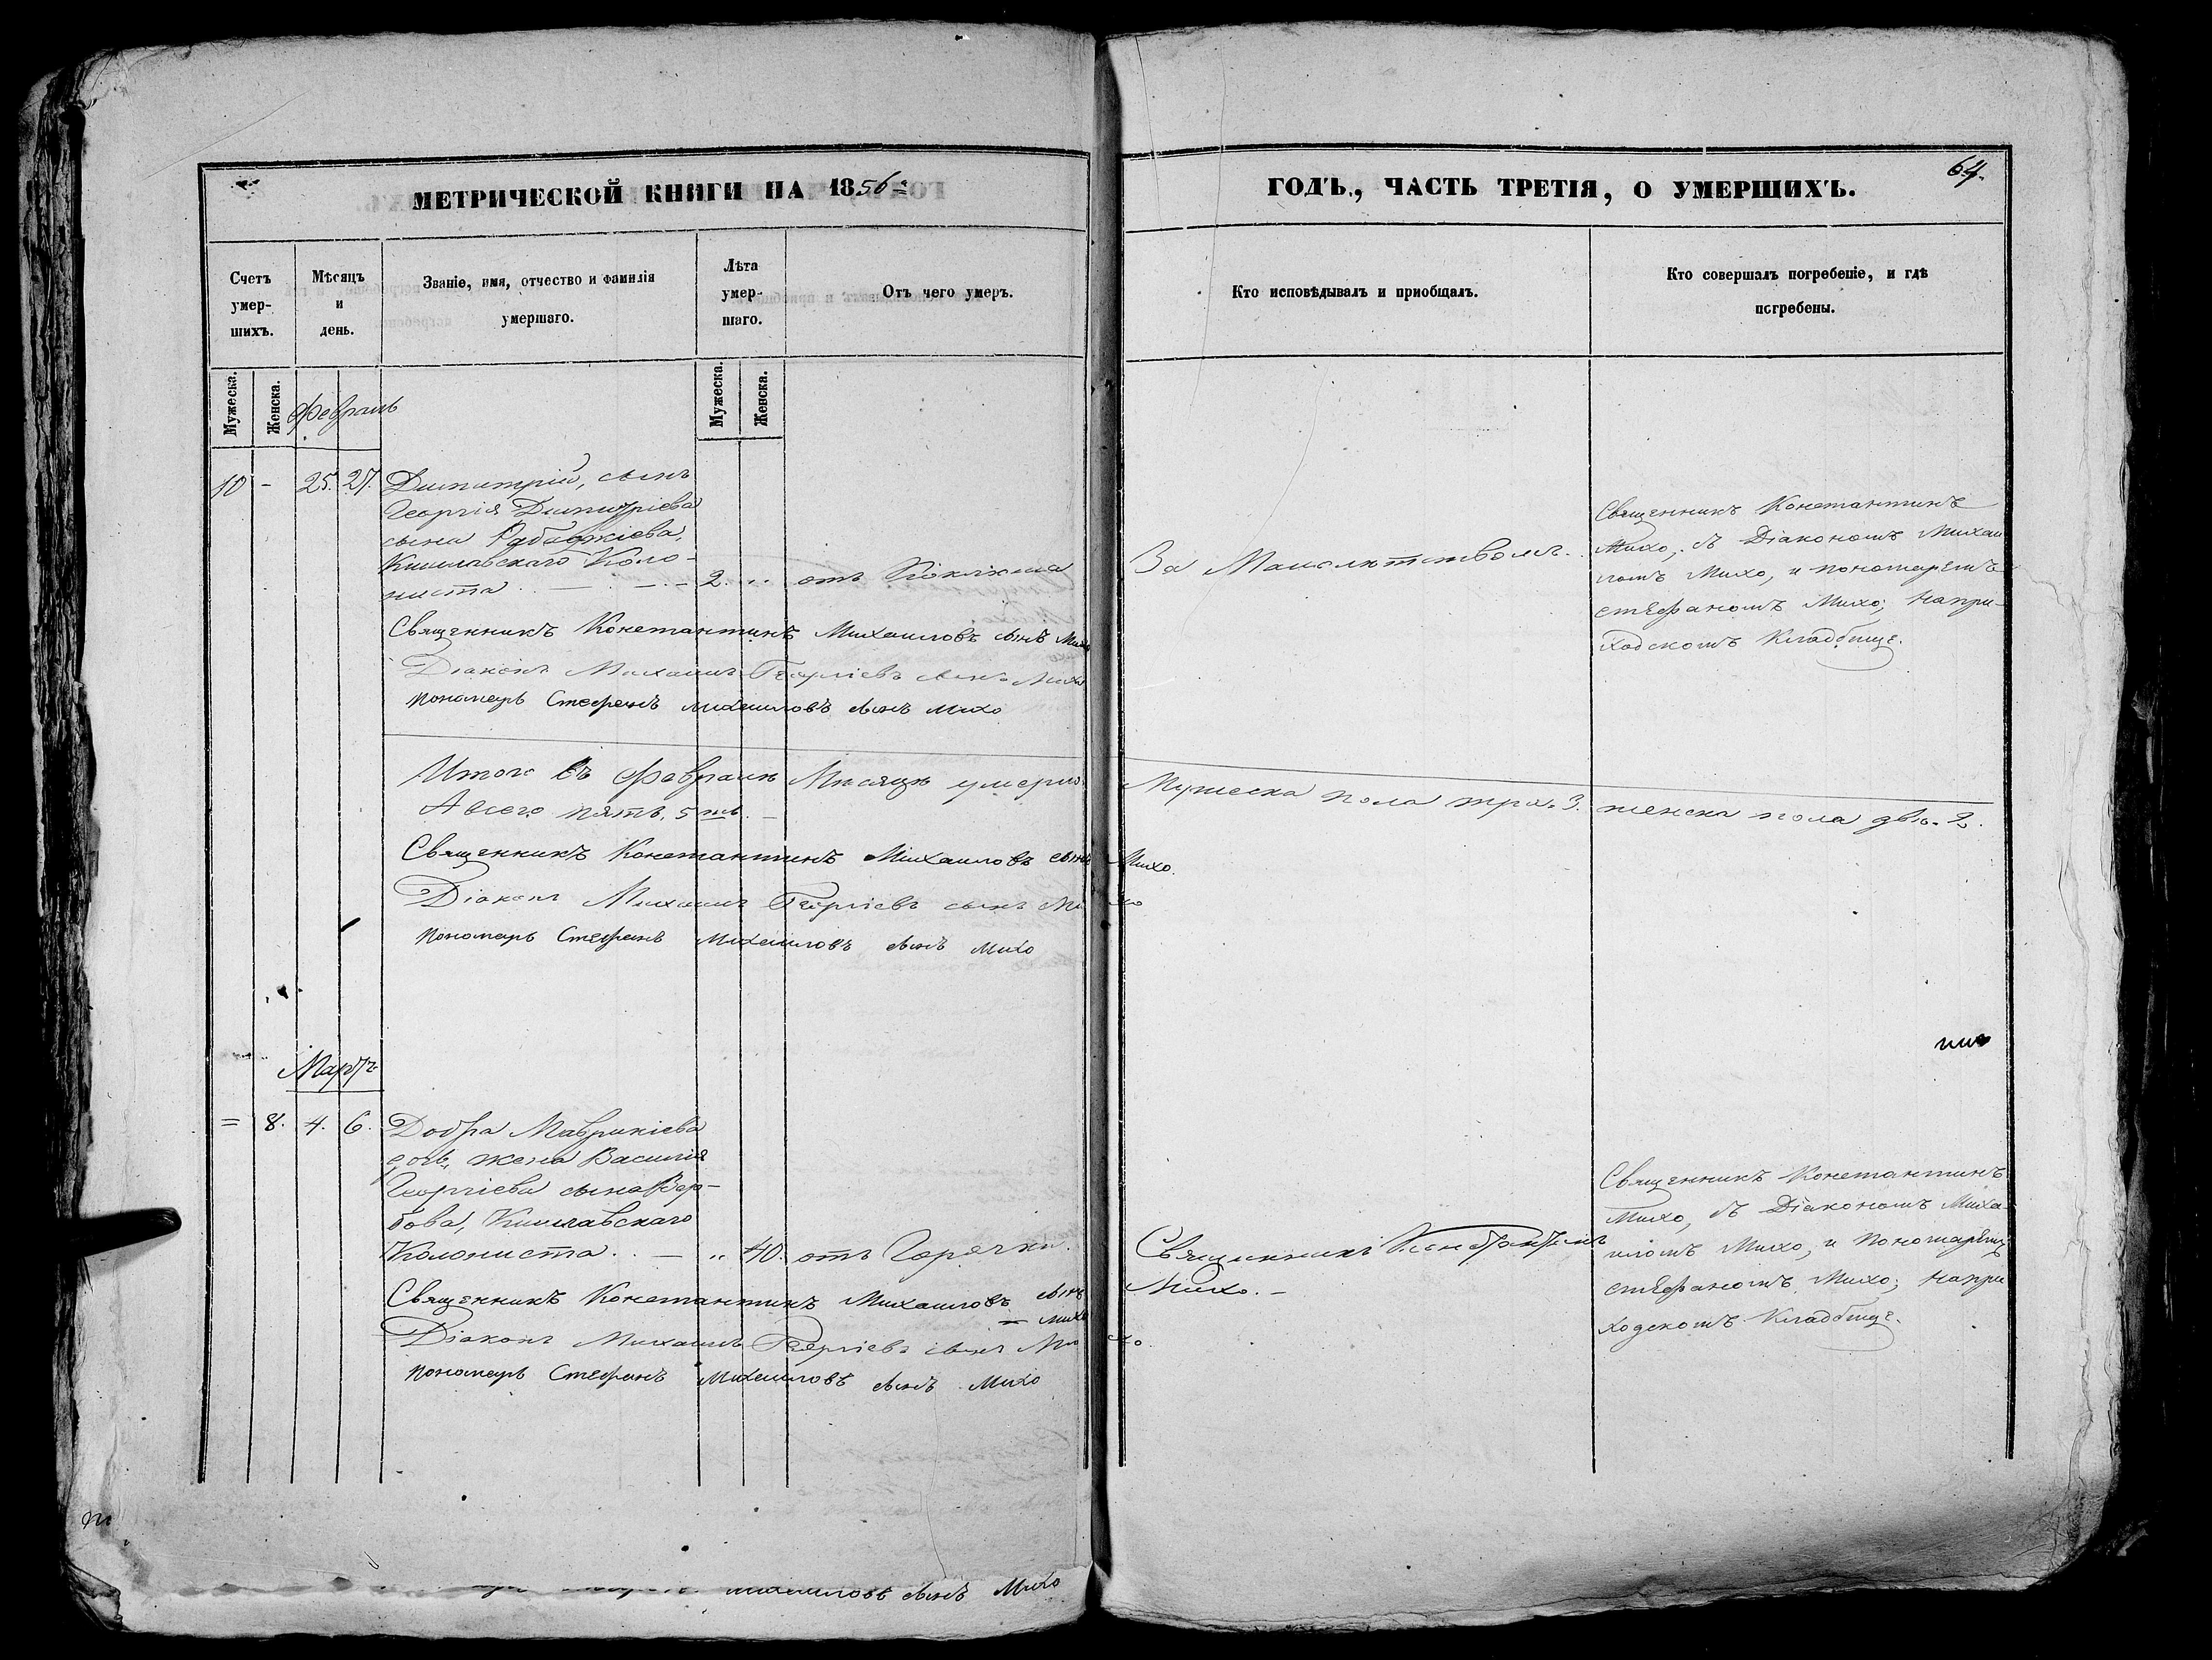 МЕТРИЧЕСКОЙ КНИГИ НА 1856
Счетъ умер-шихъ.
Мѣсяцъ и день.
Званіе, имя, отчество и фамилія умершаго.
Лѣта умер-шаго.
Отъ чего умеръ.
Мужеска.
Женска.
Мужеска.
Женска.
Февраль
10 - 25. 27. Димитрій, сынъ
Георгія Димитріева
сына
Кишлавскаго Коло-
ниста 2. " отъ Коклюша
Священникъ Константинъ Михаиловъ сынъ Михо
Діаконъ Михаилъ Георгіевъ сынъ Михо
Пономарь Стефанъ Михаиловъ сынъ Михо
Итого въ Февралѣ Мѣсяцѣ умерло
А всего пять. 5ть.
Священникъ Константинъ Михаиловъ сынъ Михо.
Діаконъ Михаилъ Георгіевъ сынъ Михо
Пономарь Стефанъ Михаиловъ сынъ Михо
Мартъ
= 8. 4. 6. Добра Маврикіева
дочь, жена Василія
Георгіева сына Вер-
бова, Кишлавскаго
Колониста. " 40. отъ Горячки.
Священникъ Константинъ Михаиловъ сынъ
Михо
Діаконъ Михаилъ Георгіевъ сынъ Михо.
Пономарь Стефанъ Михаиловъ сынъ Михо
Михаиловъ сынъ Михо
ГОДЪ., ЧАСТЬ ТРЕТІЯ, О УМЕРШИХЪ.
64.
Кто исповѣдывалъ и пріобщалъ.
Кто совершалъ погребеніе, и гдѣ
погребены.
За Малолѣтствомъ.
Священникъ Константинъ
Михо, съ Діакономъ Михаи
ломъ Михо, и пономаремъ
Стефаномъ Михо; на при-
ходскомъ Кладбище.
Мужеска пола три. 3. женска пола двѣ. 2.
Священникъ Константинъ
Михо. -
Священникъ Константинъ
Михо, съ Діакономъ Миха-
иломъ Михо, и Пономаремъ
Стефаномъ Михо; на при
ходскомъ Кладбище.